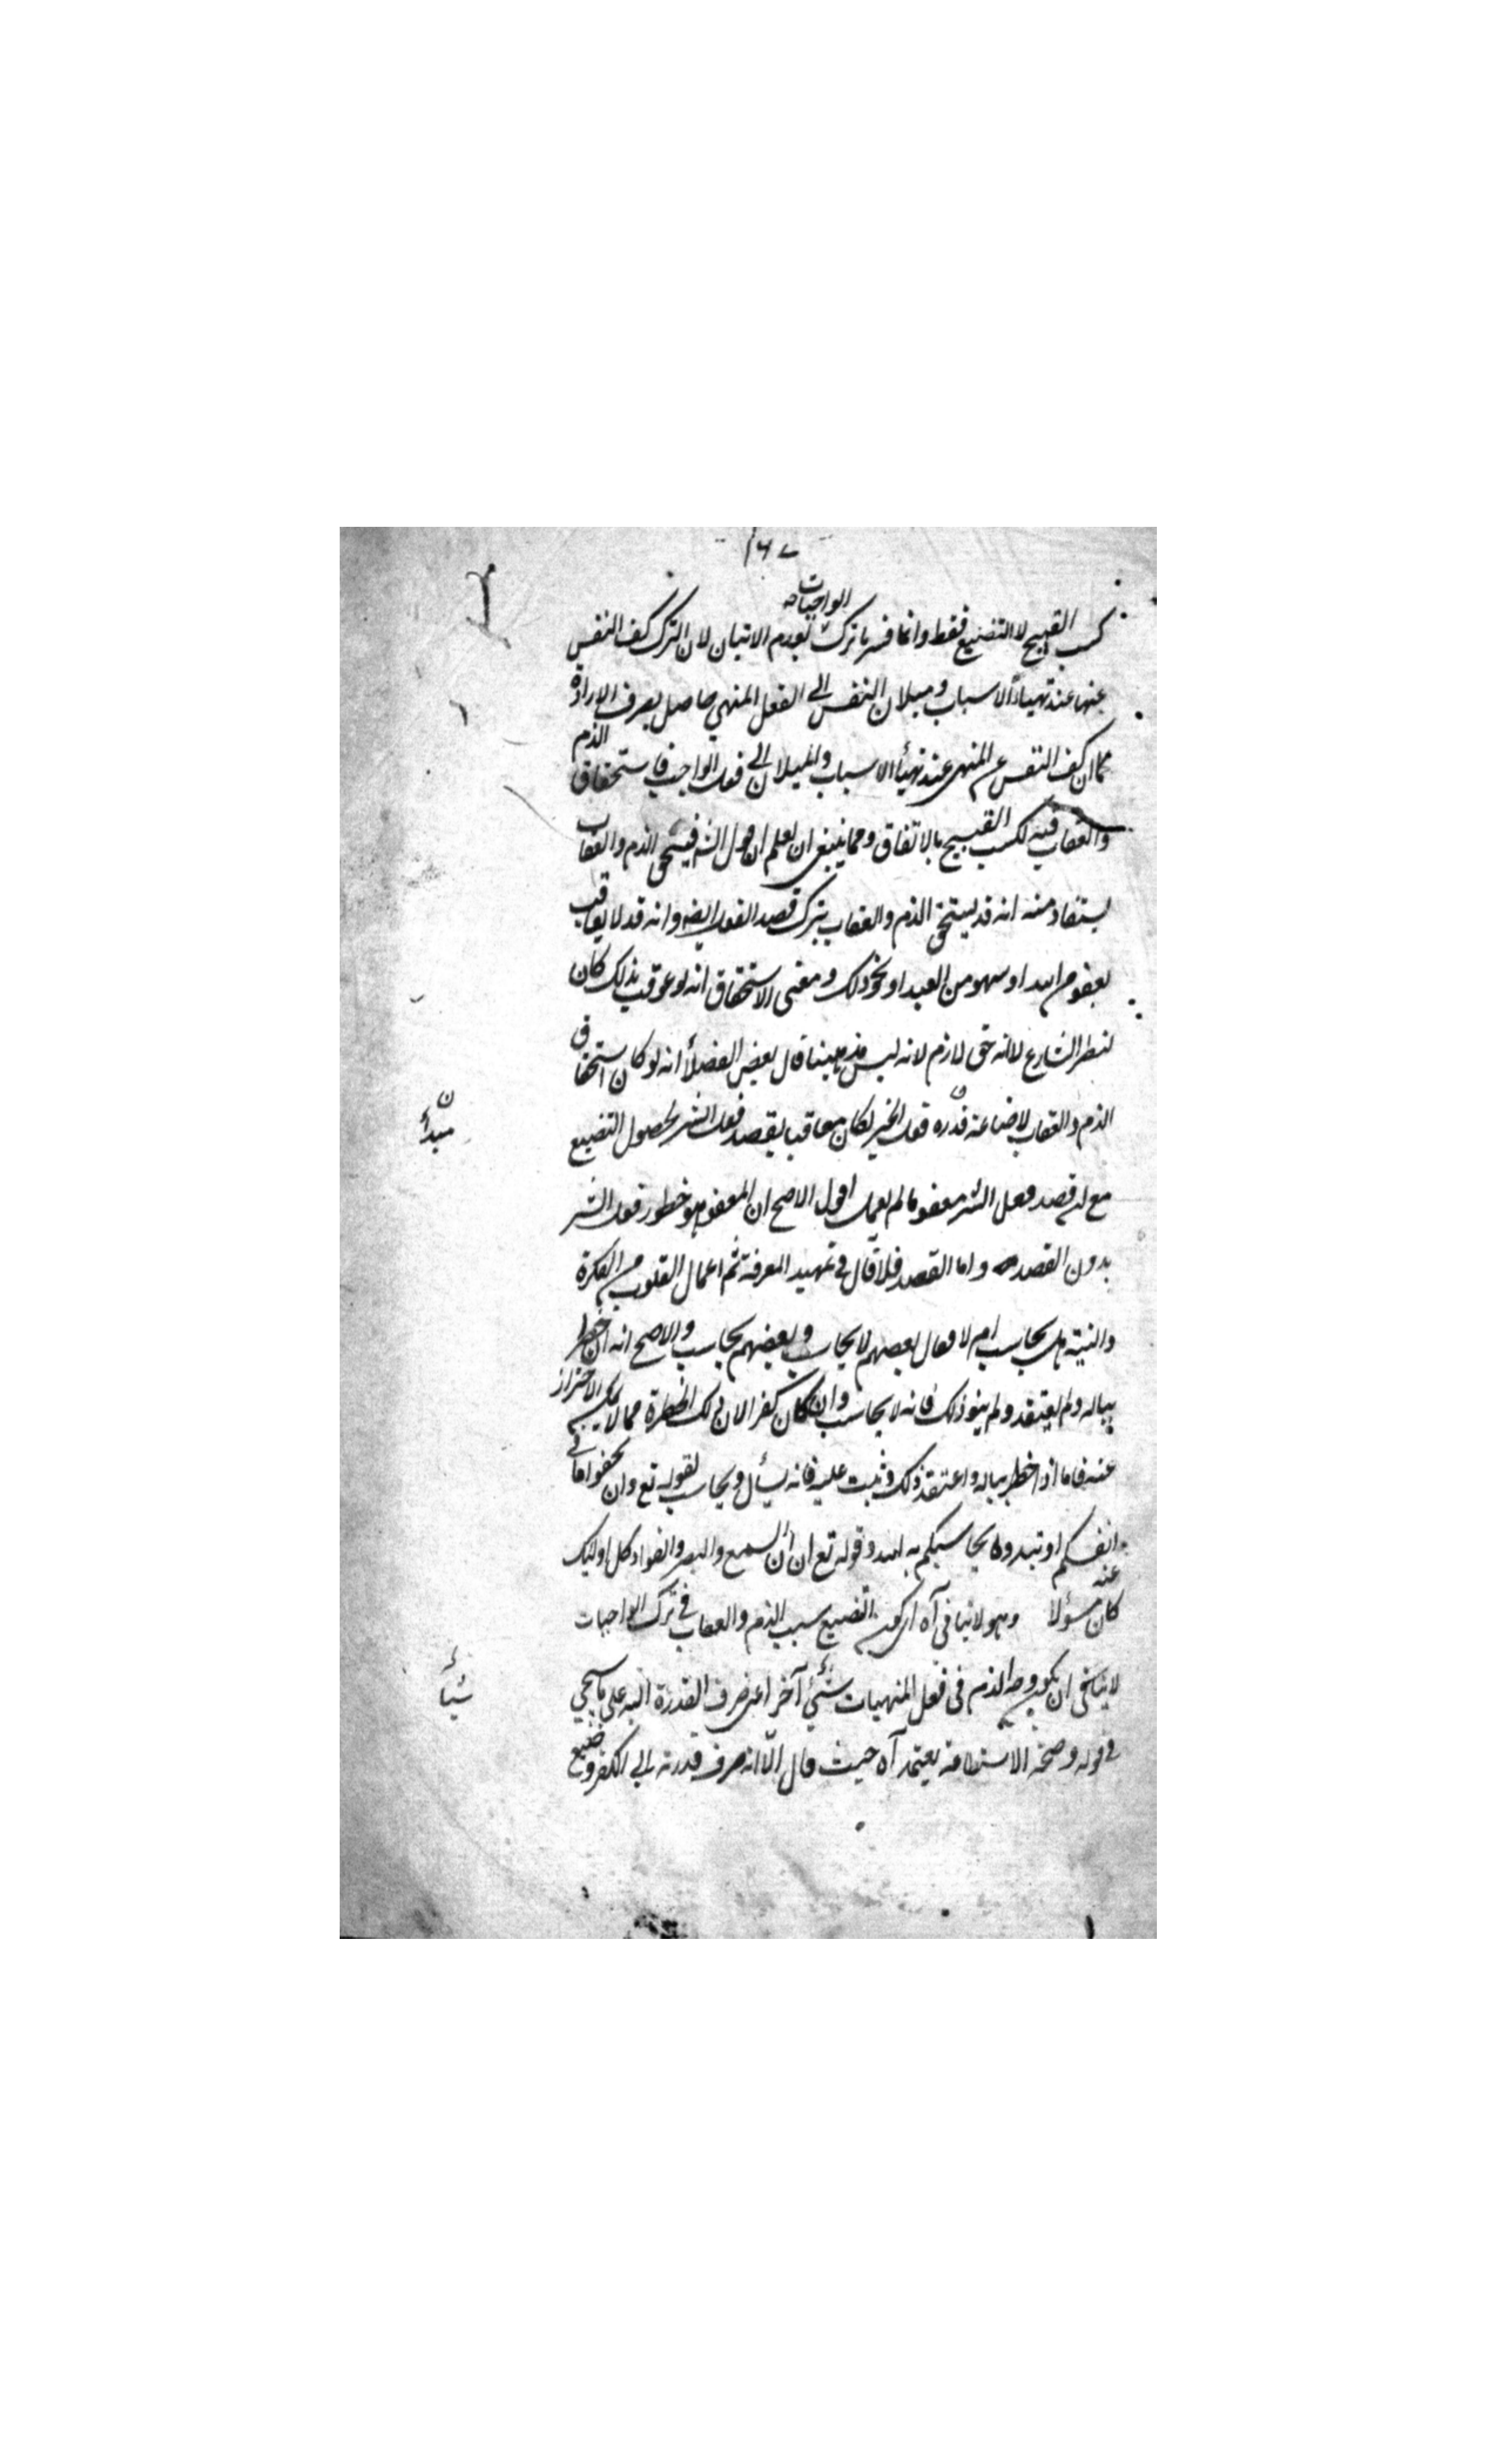 ١٦٧
الواجبات
كسب القبيح لا التضييع فقط وانما فسر ما ترك بعدم الاتيان لان الترك كف النفس
عنها عند تهيأ الاسباب وميلان النفس الى الفعل المنهي حاصل بصرف الارادة
كما ان كف النفس عن المنهي عند تهيأ الاسباب والميلان الى فعل الواجب فاستحقاق الذم
والعقاب فيه لكسب القبيح بالاتفاق ومما ينبغي ان يعلم ان قول الش فيستحق الذم والعقاب
يستفاد منه انه قد يستحق الذم والعقاب بترك قصد الفعل ايضا وانه قد لا يعاقب
بعفو من الله او سهو من العبد او نحو ذلك ومعنى الاستحقاق انه لو عوقب بذلك كان
لنظر الشارع لا انه حق لازم لانه ليس مذهبينا قال بعض الفضلأ انه لو كان استحقاق
الذم والعقاب لاضاعته قدرة فعل الخير لكان معاقبا بقصد فعل الشر لحصول التضييع
مع ان قصد فعل الشر معفو ما لم يعمل اقول الاصح ان المعفو هو خطور فعل الشر
بدون القصد واما القصد فلا قال في تمهيد المعرفة ثم اعمال القلوب من الفكرة
والنية هل يحاسب ام لا فقال بعضهم لا يحاسب وبعضهم يحاسب والاصح انه ان خطر
بباله ولم يعتقد ولم ينو ذلك فانه لا يحاسب وان كان كفرا لان تلك الخطرة مما لا يمكن الاحتراز
عنه فاما اذا خطر بباله واعتقد ذلك وثبت عليه فانه يسأل ويحاسب لقوله تع وان تخفوا ما في
انفسكم او تبدوه يحاسبكم به الله وقوله تع ان السمع والبصر والفواد كل اولئك
كان عنه مسؤلا وهو لا ينافي آه اي كون التضييع سبب الذم والعقاب في ترك الواجبات
لا ينافي ان يكون وجه الذم في فعل المنهيات شئ آخر اعني صرف القدرة اليه على ما سيجي
في قوله وصحة الاستطاعة يعتمد آه حيث قال الا انه صرف قدرته الى الكفر وضيع
مبدأ
شيأ